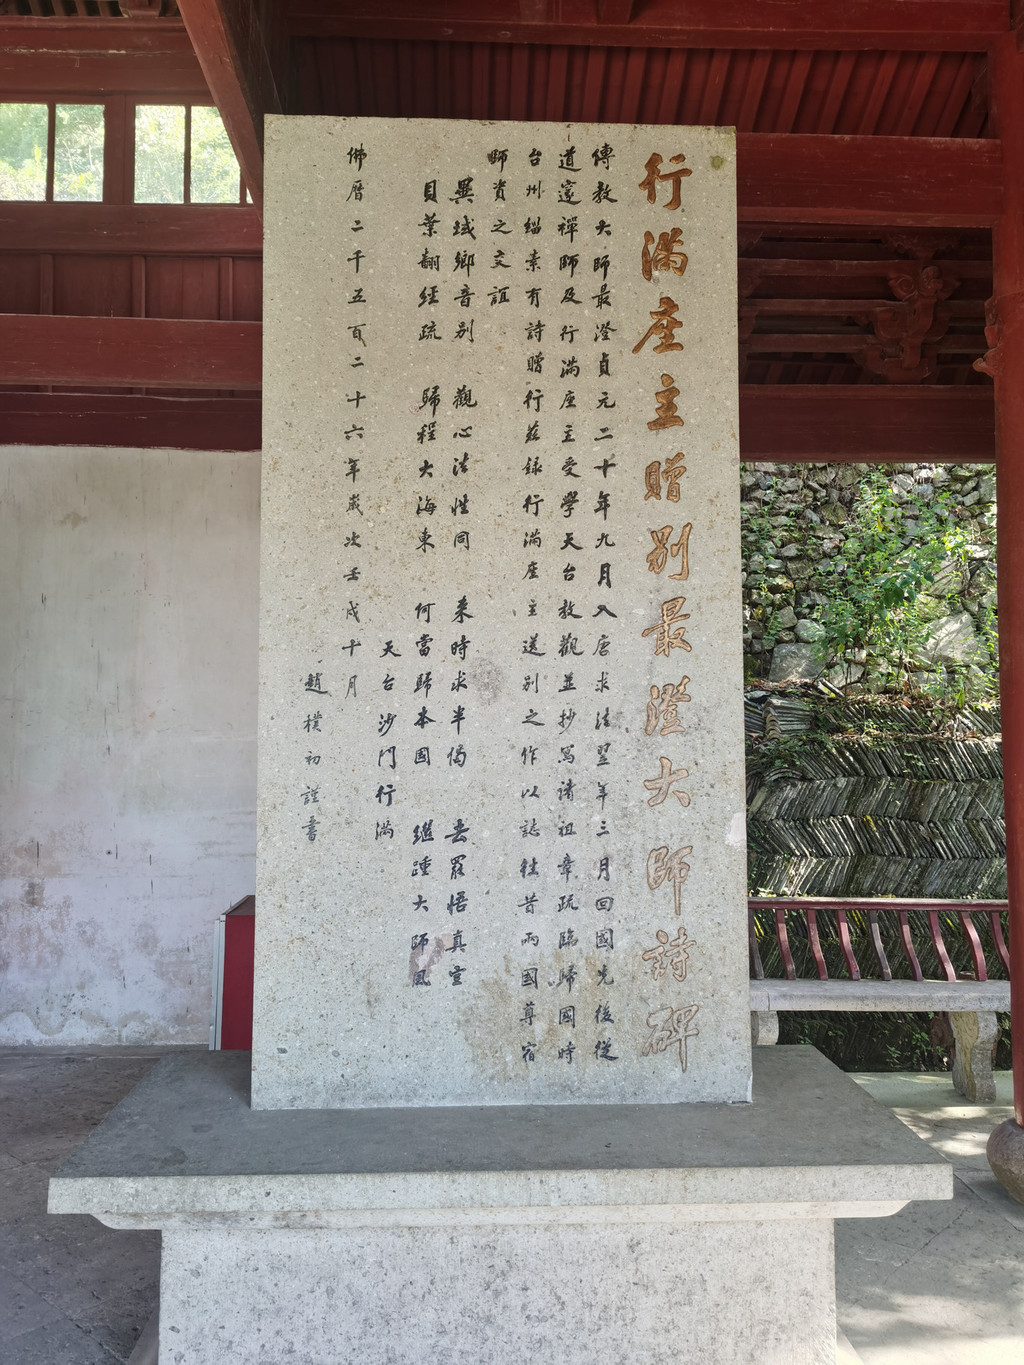 行滿座主贈别最澄大師詩碑
傳教大師最澄貞元二十年九月入唐求法翌年三月回國先後從
道邃禪師及行滿座主受學天台教觀並抄寫諸祖章疏臨歸國時
台州緇素有詩贈行兹錄行滿座主送别之作以誌往昔兩國尊宿
師資之交誼
異域鄉音别 觀心法性同 來時求半偈 去罷悟真空
貝葉翻經疏 歸程大海東 何當歸本國 繼踵大師風
天台沙門行滿
佛曆二千五百二十六年歲次壬戌十月
趙樸初謹書